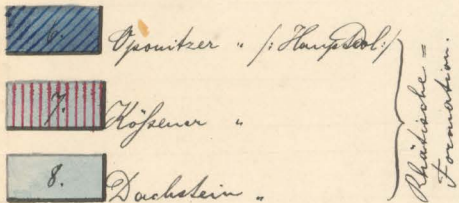 6. Oponitzer " /: Hauptdol :/
7. Kößener "
8. Dachstein "
Rhätische =
Formation.